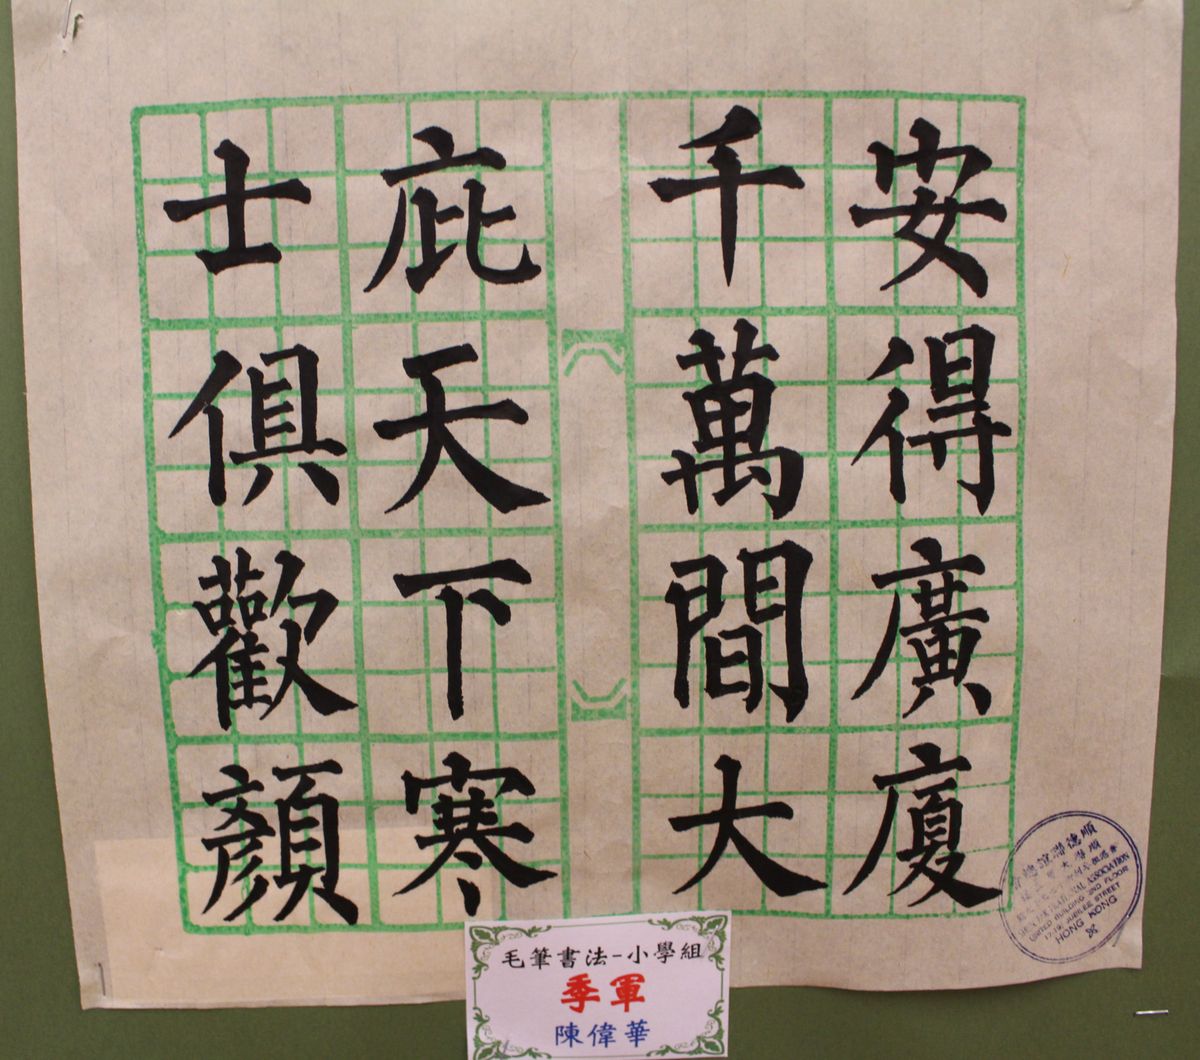 安得廣廈
千萬間大
庇天下寒
士俱歡顏
順德聯誼總會
ASSOCIATION
UNITED BUILDING 2ND FLOOR
JUBILEE STREET
HONG KONG
毛筆書法-小學組
季軍
陳偉華